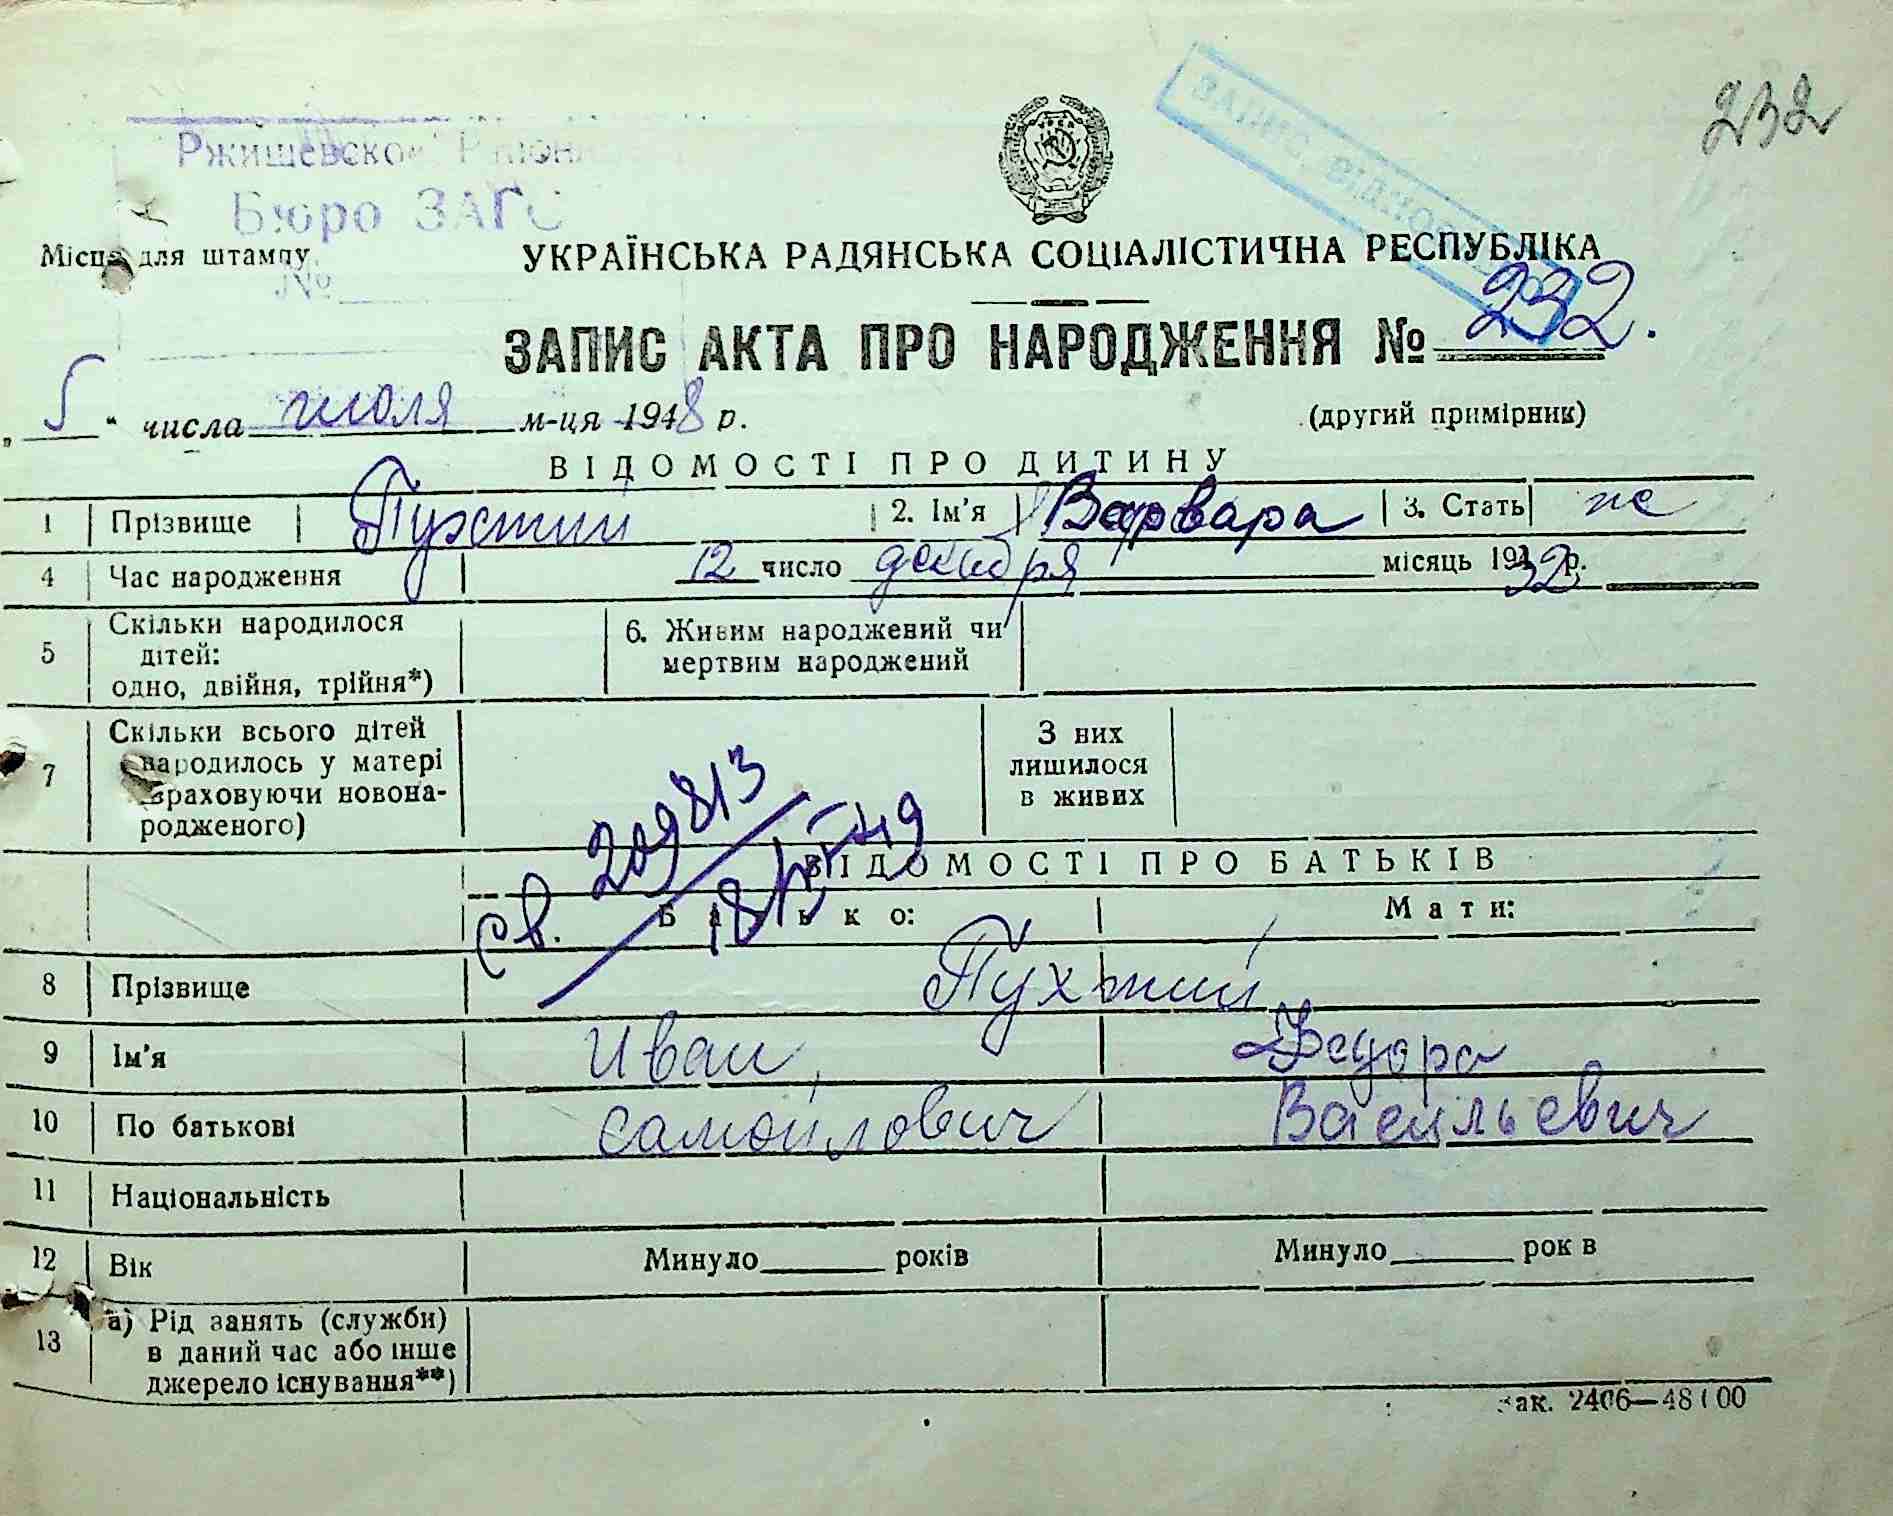 232
ЗАПИС ВІДНОВЛ
Ржищевское Район
Бюро ЗАГС
Місце для штампу
№
УКРАЇНСЬКА РАДЯНСЬКА СОЦІАЛІСТИЧНА РЕСПУБЛІКА
ЗАПИС АКТА ПРО НАРОДЖЕННЯ № 232.
„5" числа июля м-ця 1948 р. (другий примірник)
ВІДОМОСТІ ПРО ДИТИНУ
1 Прізвище Пухтий 2. Ім'я Варвара 3. Стать ж
4 Час народження 12 число декабря місяць 1932 р.
5 Скільки народилося дітей: одно, двійня, трійня*) 6. Живим народжений чи мертвим народжений
7 Скільки всього дітей народилось у матері враховуючи новонародженого) З них лишилося в живих
Св. 209813
18/VI-49
ВІДОМОСТІ ПРО БАТЬКІВ
Батько: Мати:
8 Прізвище Пухтий
9 Ім'я Иван Федора
10 По батькові Самойлович Васильевич
11 Національність
12 Вік Минуло ______ років Минуло ______ рок в
13 а) Рід занять (служби) в даний час або інше джерело існування**)
Зак. 2406—48100